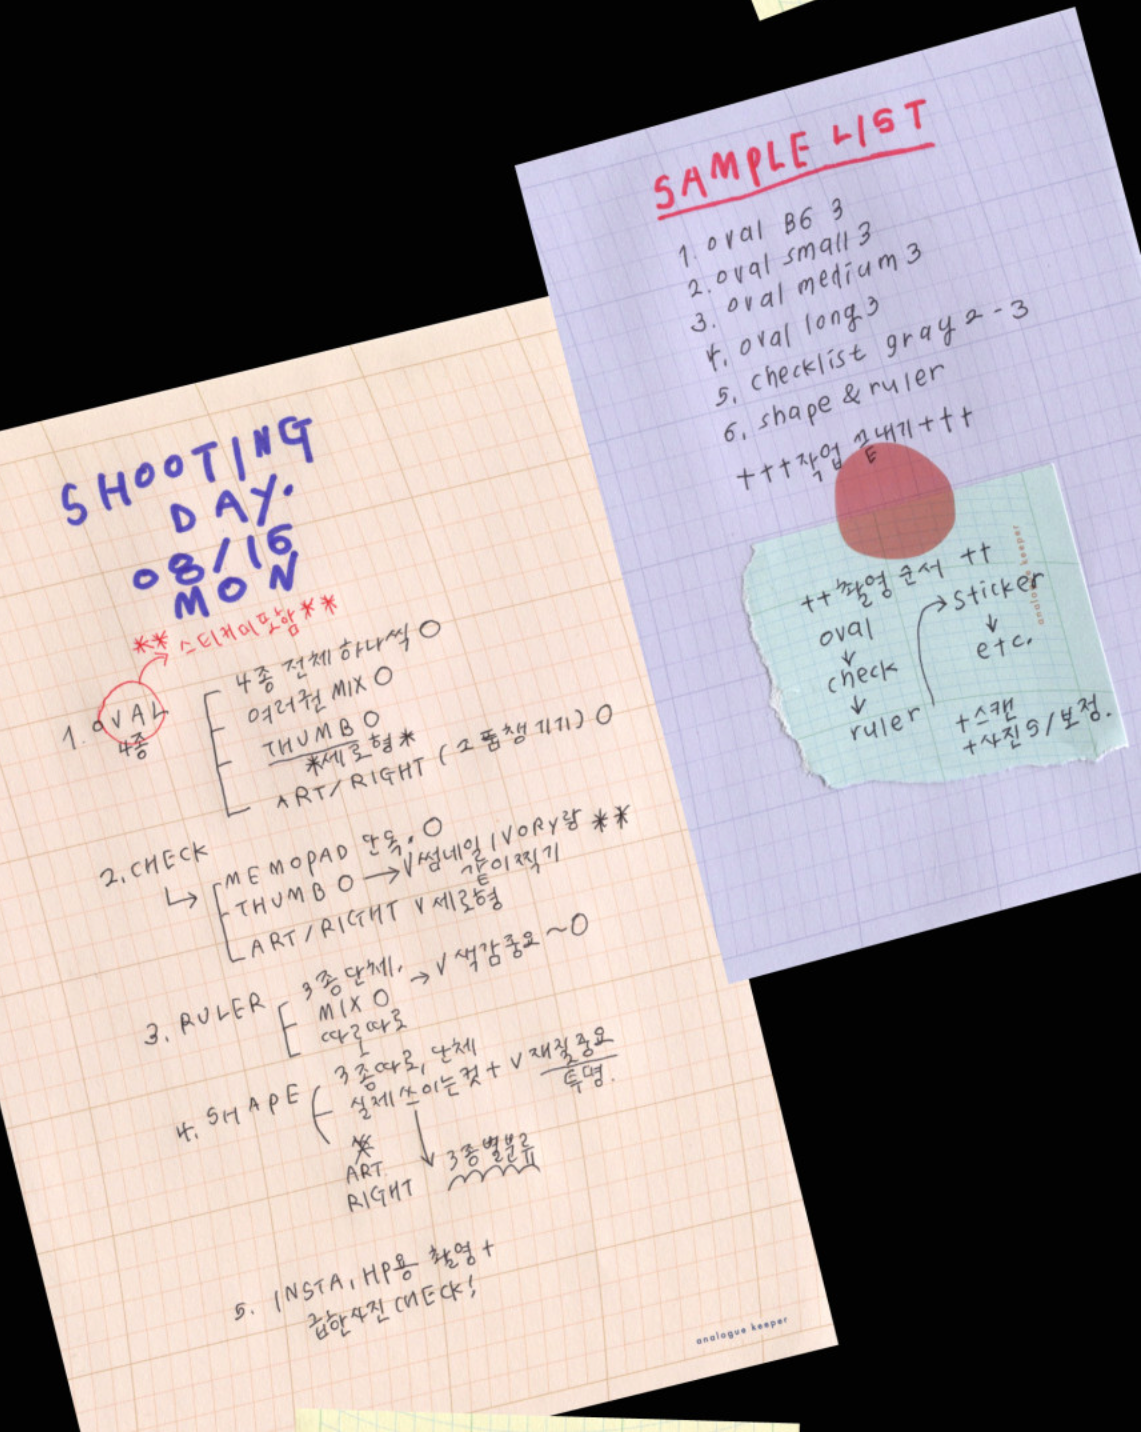 SHOOTING
DAY.
08/16
MON
** 스티커미포함**
1. OVAL
4종
4종 전체 하나씩 O
여러권 MIX O
THUMB O
*세로형*
ART/RIGHT (소품챙기기) O
2. CHECK
MEMOPAD 단독. O
THUMB O → V썸네일 IVORY랑 **
같이찍기
ART/RIGHT V 세로형
3. RULER
3종단체.
MIX O → V 색감중요~O
따로따로
4. SHAPE
3종따로, 단체
실제쓰이는컷 + V 재질중요
투명.
*
ART
RIGHT
3종별분류
5. INSTA, HP용 촬영+
급한사진 CHECK!
analogue keeper
SAMPLE LIST
1. oval B6 3
2. oval small 3
3. oval medium 3
4. oval long 3
5. checklist gray 2-3
6. shape & ruler
+++작업 끝내기+++
++촬영 순서 ++
oval
↓
check
↓
ruler
→ sticker
↓
etc.
+스캔
+사진 /보정.
analogue keeper